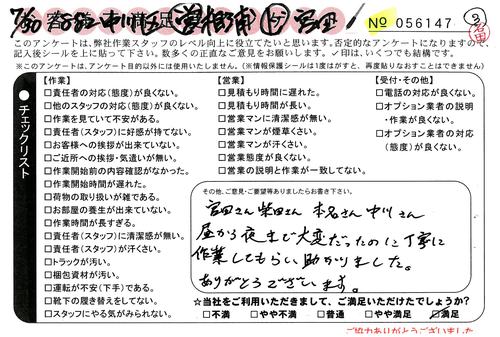 7/30
中川区
宮田
No 056147
②
このアンケートは、弊社作業スタッフのレベル向上に役立てたいと思います。否定的なアンケートになりますので、
記入後シールを上に貼って下さい。数多くの正直なご意見をお願いします。✓印は、いくつでも結構です。
※このアンケートは、アンケート目的以外には使用いたしません。(※情報保護シールは1度はがすと、再度貼りなおすことはできません)
チェックリスト
【作業】
□責任者の対応(態度)が良くない。
□他のスタッフの対応(態度)が良くない。
□作業を見ていて不安がある。
□責任者(スタッフ)に好感が持てない。
□お客様への挨拶が出来ていない。
□ご近所への挨拶・気遣いが無い。
□作業開始前の内容確認がなかった。
□作業開始時間が遅れた。
□荷物の取り扱いが雑である。
□お部屋の養生が出来ていない。
□作業時間が長すぎる。
□責任者(スタッフ)に清潔感が無い。
□責任者(スタッフ)が汗くさい。
□トラックが汚い。
□梱包資材が汚い。
□運転が不安(下手)である。
□靴下の履き替えをしてない。
□スタッフにやる気がみられない。
【営業】
□見積もり時間に遅れた。
□見積もり時間が長い。
□営業マンに清潔感が無い。
□営業マンが煙草くさい。
□営業マンが汗くさい。
□営業態度が良くない。
□営業の説明と作業が一致してない。
【受付・その他】
□電話の対応が良くない。
□オプション業者の説明
・作業が良くない。
□オプション業者の対応
(態度)が良くない。
その他、ご意見・ご要望等ありましたらお書き下さい。
宮田さん 柴田さん 本名さん 中川さん
昼から夜まで大変だったのに丁寧に
作業してもらい助かりました。
ありがとうございます。
☆当社をご利用いただきまして、ご満足いただけたでしょうか?
□不満 □やや不満 □普通 □やや満足 ☑満足
ご協力ありがとうございました